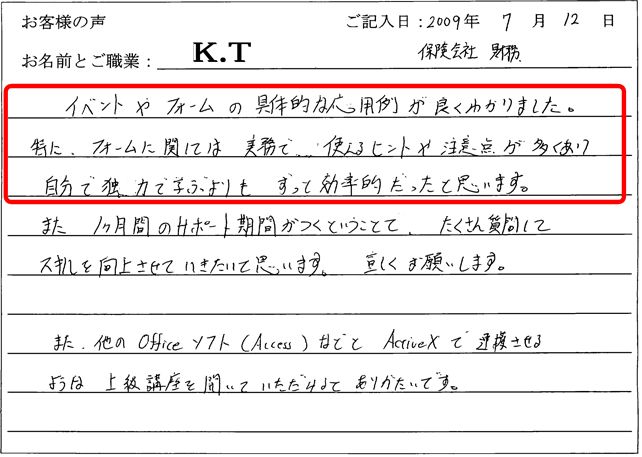 お客様の声 ご記入日：2009年 7 月 12 日
お名前とご職業： K.T 保険会社 財務
イベントや フォームの 具体的な応用例が 良くわかりました。
特に、フォームに関しては 実務で 使えるヒントや注意点が 多くあり
自分で独力で学ぶよりも ずっと効率的だったと思います。
また 1ヶ月間のサポート期間がつくということで、たくさん質問して
スキルを向上させていきたいと思います。 宜しくお願いします。
また、他の Office ソフト (Access) などと ActiveX で 連携させる
ような 上級講座を開いていただけると ありがたいです。